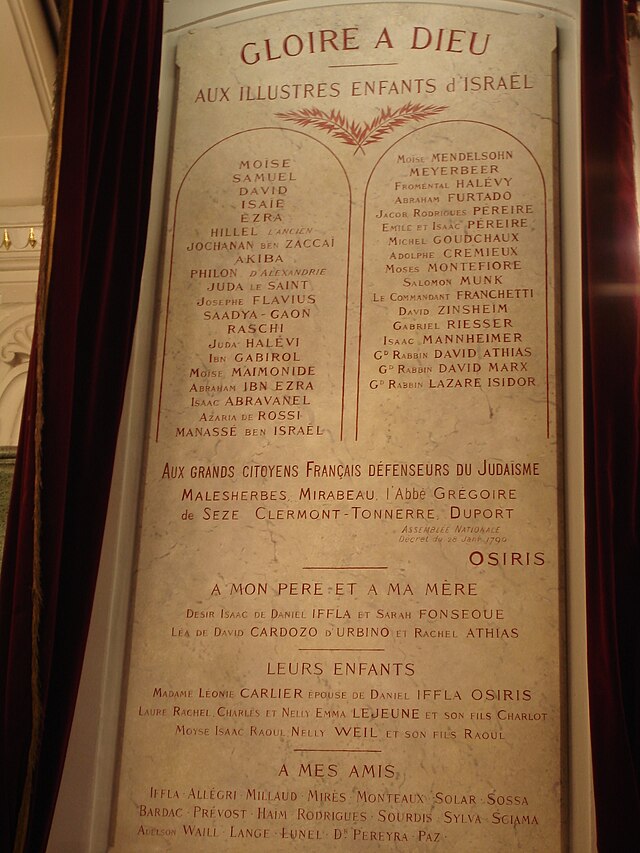 GLOIRE A DIEU
AUX ILLUSTRES ENFANTS d'ISRAËL
MOÏSE
SAMUEL
DAVID
ISAÏE
EZRA
HILLEL L'ANCIEN
JOCHANAN BEN ZACCAÏ
AKIBA
PHILON D'ALEXANDRIE
JUDA LE SAINT
JOSEPHE FLAVIUS
SAADYA-GAON
RASCHI
JUDA HALÉVI
IBN GABIROL
MOÏSE MAIMONIDE
ABRAHAM IBN EZRA
ISAAC ABRAVANEL
AZARIA DE ROSSI
MANASSÉ BEN ISRAËL
MOÏSE MENDELSOHN
MEYERBEER
FROMENTAL HALÉVY
ABRAHAM FURTADO
JACOB RODRIGUES PÉREIRE
EMILE ET ISAAC PÉREIRE
MICHEL GOUDCHAUX
ADOLPHE CRÉMIEUX
MOSES MONTEFIORE
SALOMON MUNK
LE COMMANDANT FRANCHETTI
DAVID ZINSHEIM
GABRIEL RIESSER
ISAAC MANNHEIMER
GD RABBIN DAVID ATHIAS
GD RABBIN DAVID MARX
GD RABBIN LAZARE ISIDOR
AUX GRANDS CITOYENS FRANÇAIS DÉFENSEURS DU JUDAÏSME
MALESHERBES, MIRABEAU, l'ABBÉ GRÉGOIRE
de SEZE CLERMONT-TONNERRE, DUPORT
ASSEMBLÉE NATIONALE
Décret du 28 Janr 1790
OSIRIS
A MON PERE ET A MA MÈRE
DESIR ISAAC DE DANIEL IFFLA ET SARAH FONSEQUE
LEA DE DAVID CARDOZO D'URBINO ET RACHEL ATHIAS
LEURS ENFANTS
MADAME LÉONIE CARLIER ÉPOUSE DE DANIEL IFFLA OSIRIS
LAURE RACHEL, CHARLES ET NELLY EMMA LEJEUNE ET SON FILS CHARLOT
MOYSE ISAAC RAOUL NELLY WEIL ET SON FILS RAOUL
A MES AMIS
IFFLA · ALLÉGRI · MILLAUD · MIRÈS · MONTEAUX · SOLAR · SOSSA
BARDAC · PRÉVOST · HAIM RODRIGUES · SOURDIS · SYLVA · SCIAMA
WAILL · LANGE · LUNEL · DR PEREYRA · PAZ ·